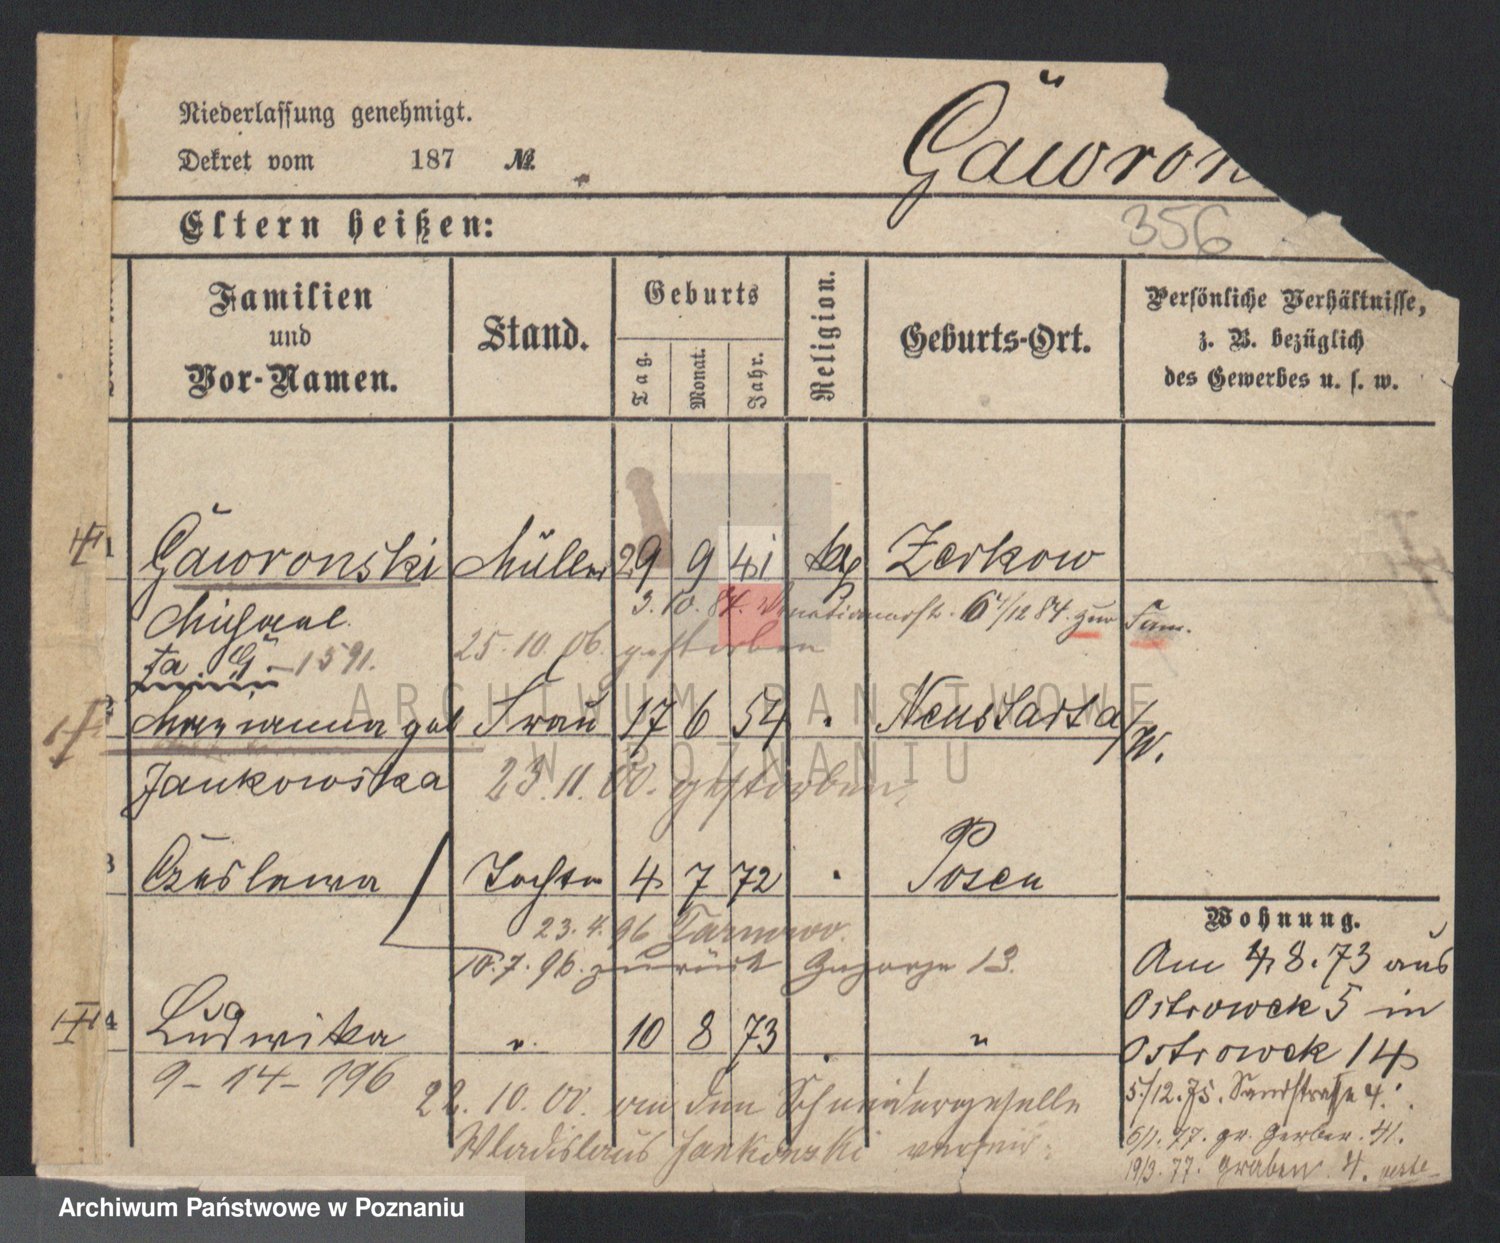 Niederlassung genehmigt.
Gäwron
Dekret vom 187 №
Eltern heißen:
356
Familien und Vor-Namen.
Stand.
Geburts
Tag.
Monat.
Jahr.
Religion.
Geburts-Ort.
Persönliche Verhältnisse,
z. B. bezüglich
des Gewerbes u. s. w.
1 Gäwronski Müller 29 9 41 kath Zerkow
Michael 3. 10. 84. 6/12 84. zur Fam.
Fa. G. - 1591. 25. 10. 06. gestorben
2 Maryanna geb Frau 17 6 54 Neustadt a/W.
Jankowska 23. 11. 00. gestorben
3 Czeslawa Tochter 4 7 72 Posen
23. 4. 96 Tarnowo.
10. 7. 96. zurück 13.
4 Ludwika " 10 8 73 "
9 - 14 - 196
22. 10. 00. an den Schneidergeselle
Wladislaus Jankowski
Wohnung.
Am 4. 8. 73 aus
Ostrowek 5 in
Ostrowek 14
5/12. 75. Sandstraße 4.
6/1. 77. gr. Gerber. 41.
19/3. 77. Graben 4.
ARCHIWUM PAŃSTWOWE
W POZNANIU
Archiwum Państwowe w Poznaniu